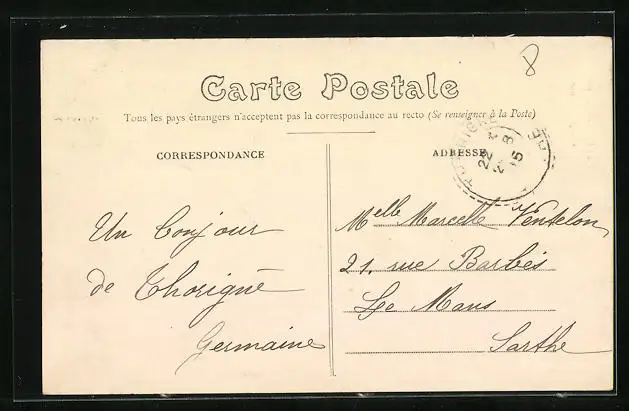 8
Carte Postale
Tous les pays étrangers n'acceptent pas la correspondance au recto (Se renseigner à la Poste)
CORRESPONDANCE
ADRESSE
22
8
15
Un bonjour
de Thorigné
Germaine
Melle Marcelle Ventelon
21. rue Barbès
Le Mans
Sarthe